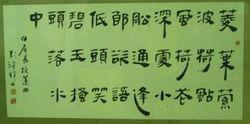 菱葉縈
波荷颭
風荷花
深處小
船通逢
郎欲語
低頭笑
碧玉搔
頭落水
中
白居易採蓮曲